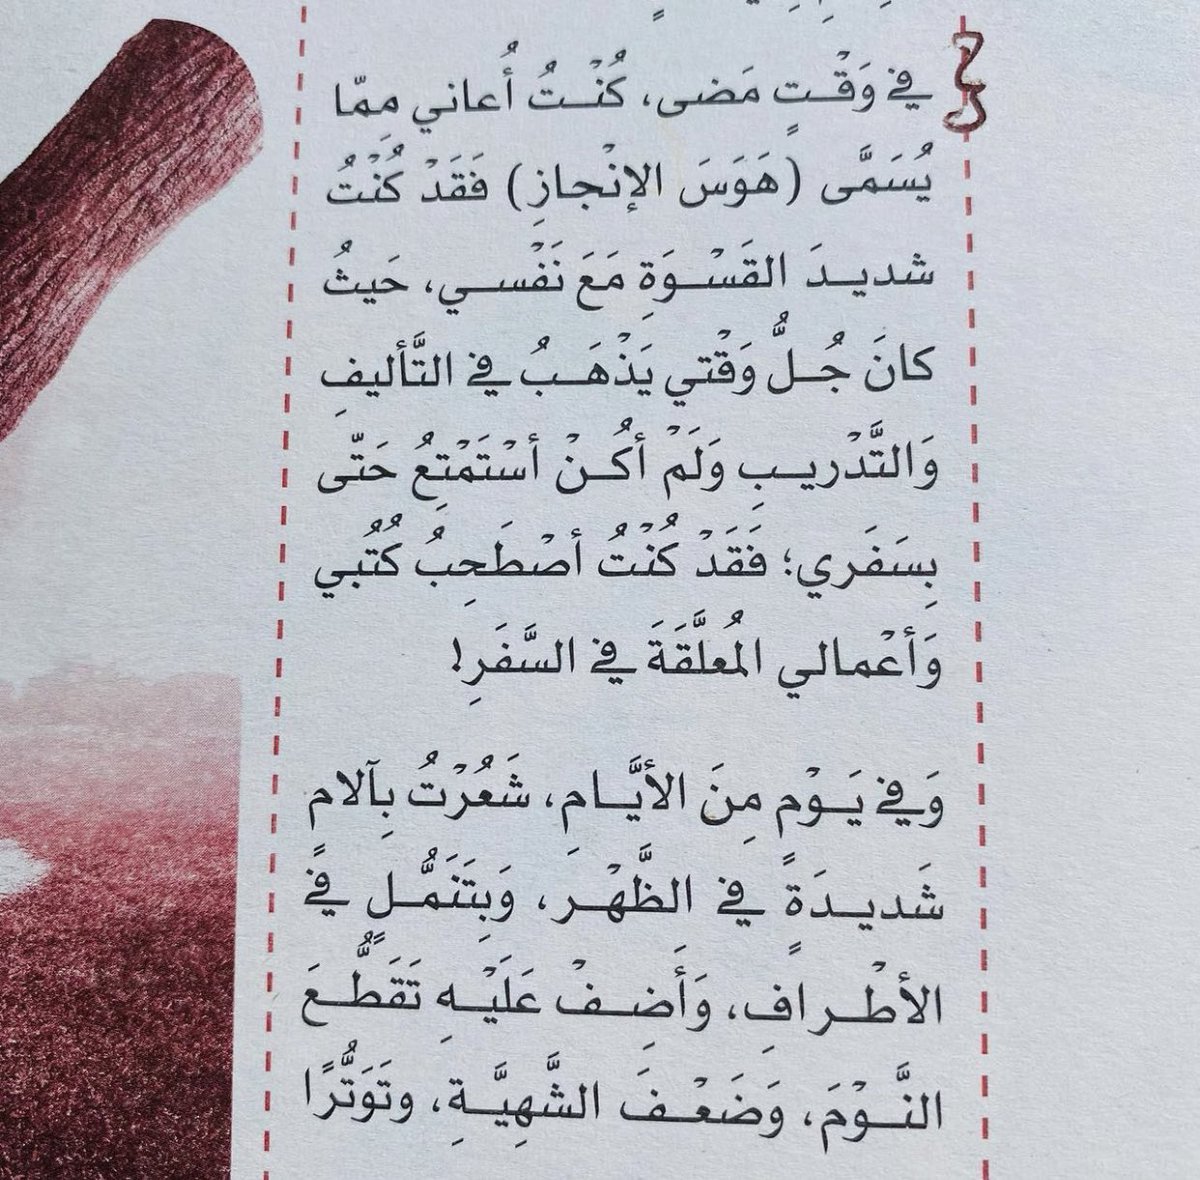 في وَقْتٍ مَضى، كُنْتُ أُعاني مِمّا
يُسَمَّى (هَوَسَ الإنْجازِ) فَقَدْ كُنْتُ
شديدَ القَسْوَةِ مَعَ نَفْسي، حَيثُ
كانَ جُلُّ وَقْتي يَذْهَبُ في التَّأليفِ
وَالتَّدْريبِ وَلَمْ أكُنْ أسْتَمْتِعُ حَتّى
بِسَفَري؛ فَقَدْ كُنْتُ أصْطَحِبُ كُتُبي
وَأعْمالي المُعلَّقَةَ في السَّفَرِ!
وَفي يَوْم مِنَ الأيَّام، شَعُرْتُ بِآلام
شَديدَةً في الظَّهْرَ، وَبِتَنَمُّلٍ في
الأطْرافِ، وَأَضِفْ عَلَيْهِ تَقَطُّعَ
النَّوْمَ، وَضَعْفَ الشَّهِيَّةِ، وتَوَتُّرًا